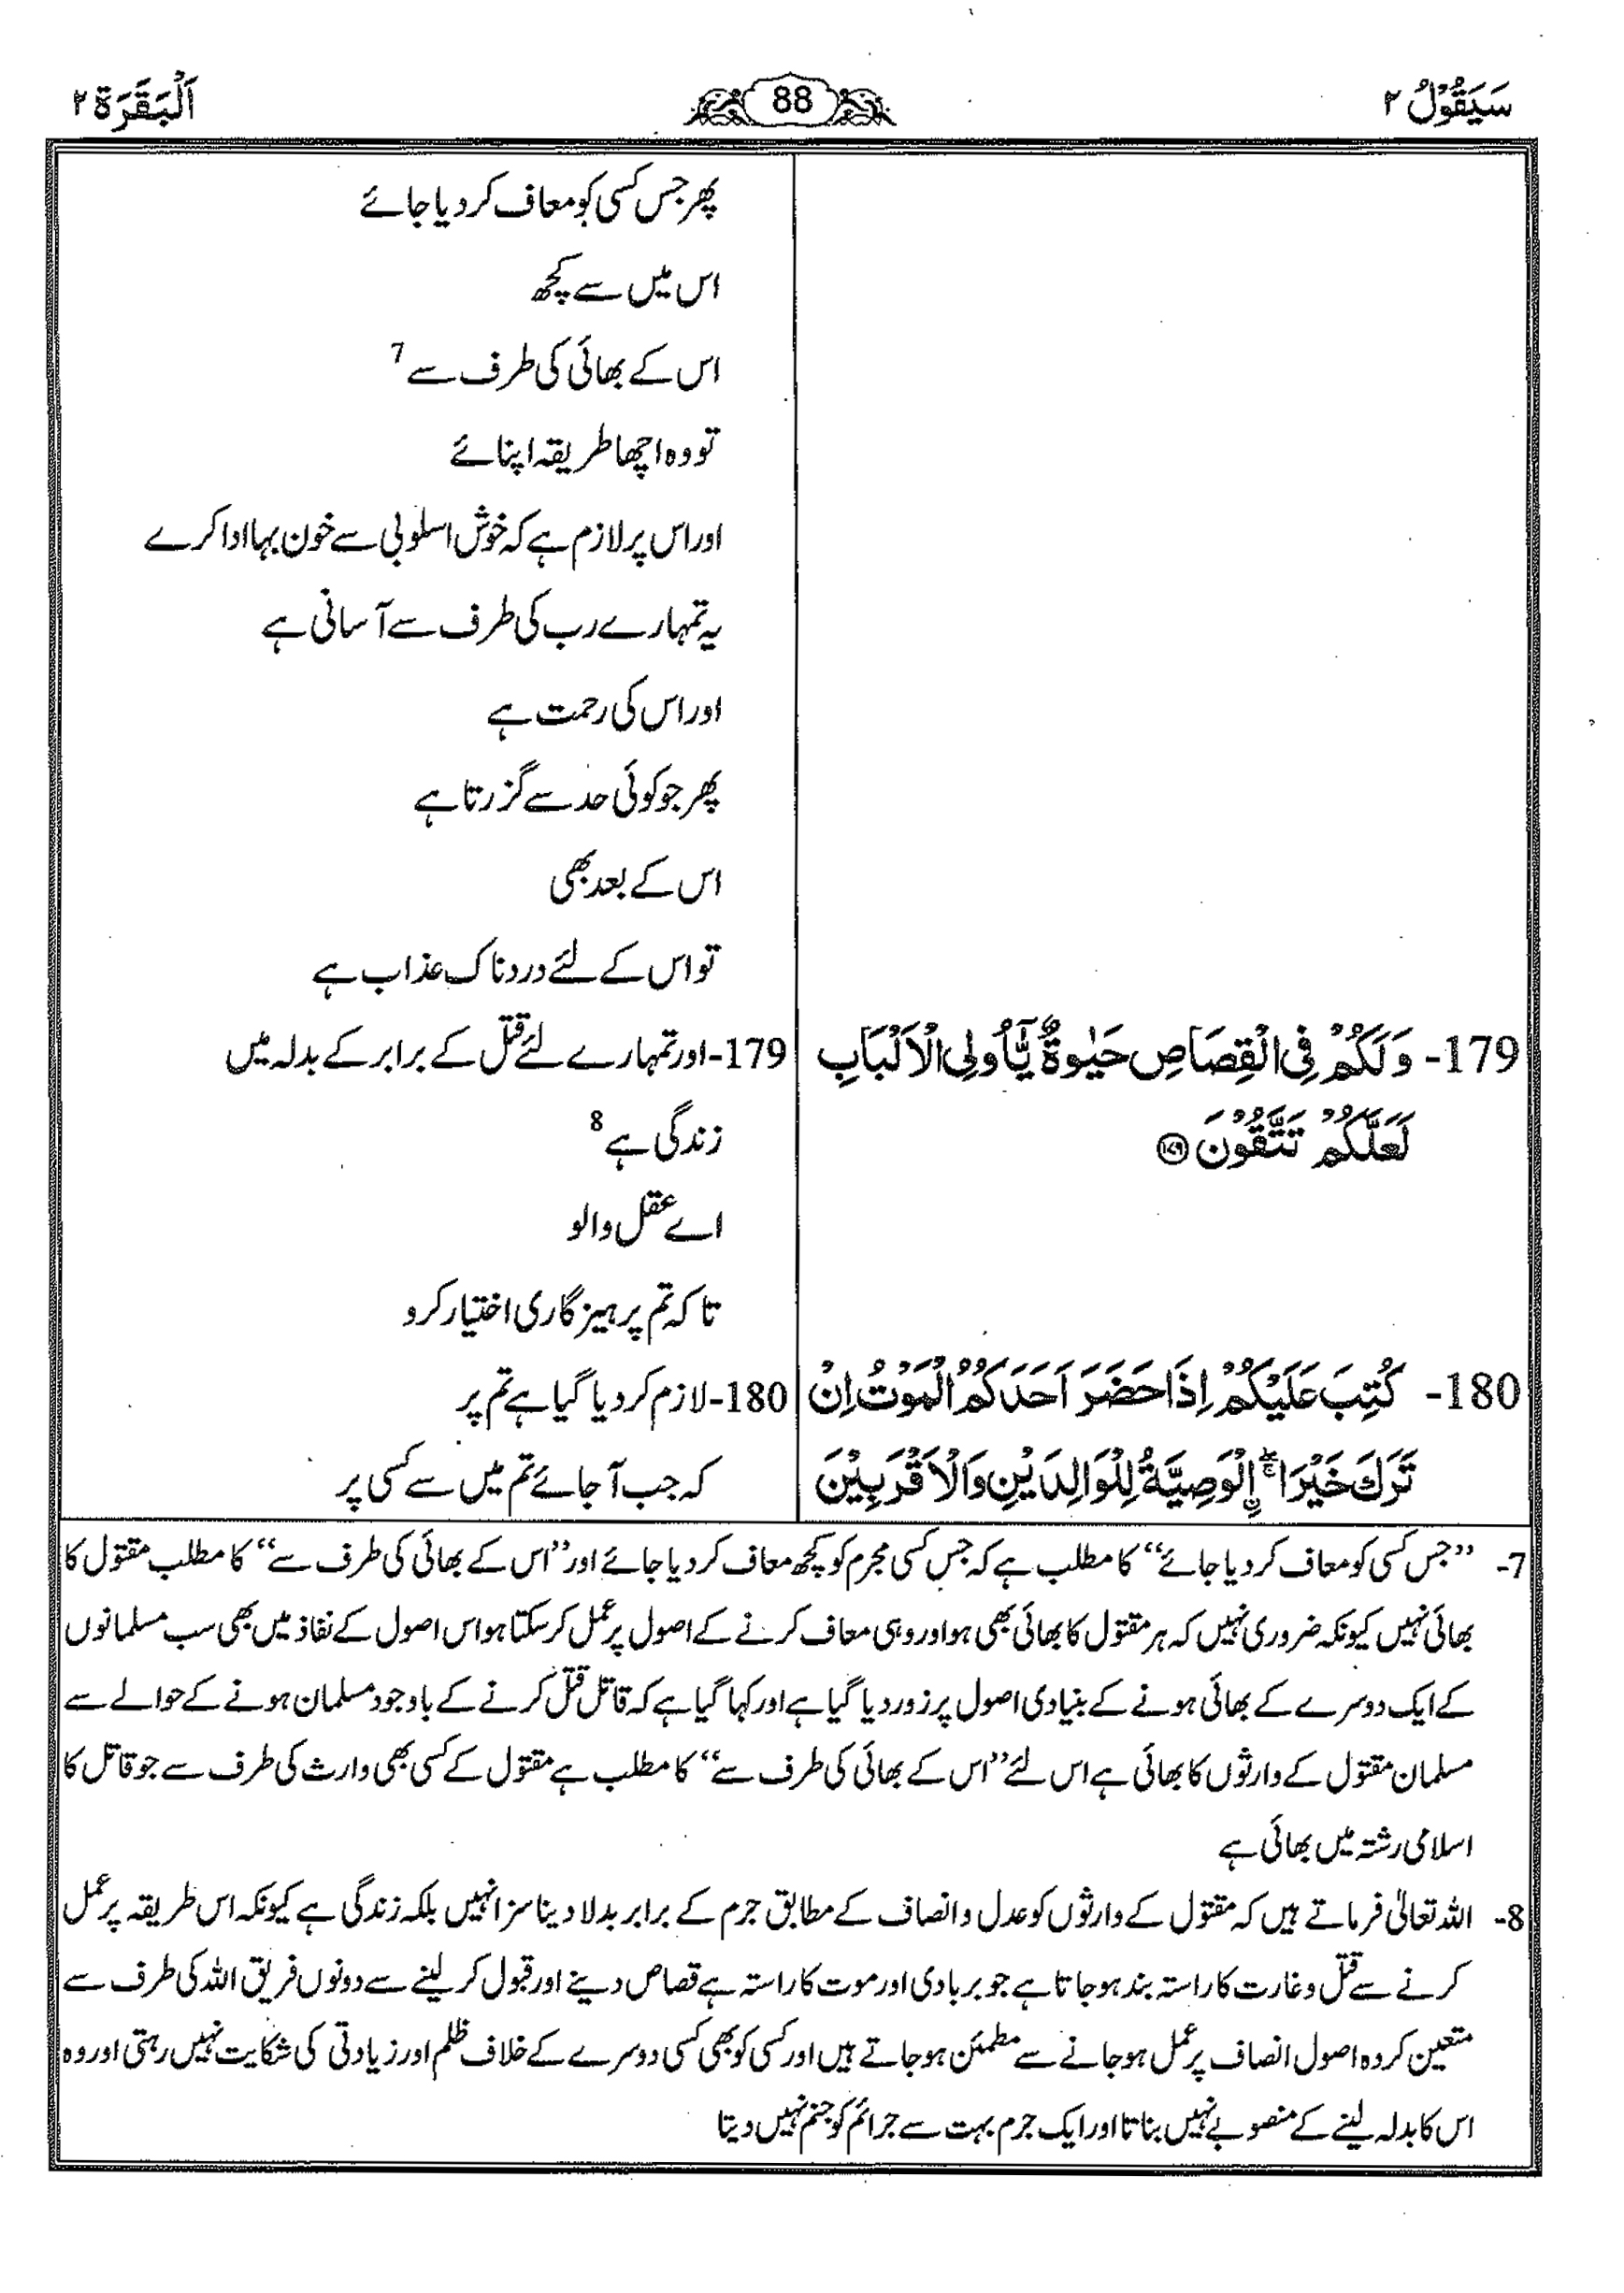 سَيَقُوْلُ ۲
88
اَلْبَقَرَة ۲
پھر جس کسی کو معاف کر دیا جائے
اس میں سے کچھ
اس کے بھائی کی طرف سے 7
تو وہ اچھا طریقہ اپنائے
اور اس پر لازم ہے کہ خوش اسلوبی سے خون بہا ادا کرے
یہ تمہارے رب کی طرف سے آسانی ہے
اور اس کی رحمت ہے
پھر جو کوئی حد سے گزرتا ہے
اس کے بعد بھی
تو اس کے لئے دردناک عذاب ہے
179- وَلَكُمْ فِى الْقِصَاصِ حَيٰوةٌ يّٰٓاُولِى الْاَلْبَابِ
لَعَلَّكُمْ تَتَّقُوْنَ ۝۱۷۹
179- اور تمہارے لئے قتل کے برابر کے بدلہ میں
زندگی ہے 8
اے عقل والو
تاکہ تم پرہیزگاری اختیار کرو
180- كُتِبَ عَلَيْكُمْ اِذَا حَضَرَ اَحَدَكُمُ الْمَوْتُ اِنْ
تَرَكَ خَيْرَا ۖۚ اِ۟لْوَصِيَّةُ لِلْوَالِدَيْنِ وَالْاَقْرَبِيْنَ
180- لازم کر دیا گیا ہے تم پر
کہ جب آ جائے تم میں سے کسی پر
7- ’’جس کسی کو معاف کر دیا جائے‘‘ کا مطلب ہے کہ جس کسی مجرم کو کچھ معاف کر دیا جائے اور ’’اس کے بھائی کی طرف سے‘‘ کا مطلب مقتول کا
بھائی نہیں کیونکہ ضروری نہیں کہ ہر مقتول کا بھائی بھی ہو اور وہی معاف کرنے کے اصول پر عمل کر سکتا ہو اس اصول کے نفاذ میں بھی سب مسلمانوں
کے ایک دوسرے کے بھائی ہونے کے بنیادی اصول پر زور دیا گیا ہے اور کہا گیا ہے کہ قاتل قتل کرنے کے باوجود مسلمان ہونے کے حوالے سے
مسلمان مقتول کے وارثوں کا بھائی ہے اس لئے ’’اس کے بھائی کی طرف سے‘‘ کا مطلب ہے مقتول کے کسی بھی وارث کی طرف سے جو قاتل کا
اسلامی رشتہ میں بھائی ہے
8- اللہ تعالیٰ فرماتے ہیں کہ مقتول کے وارثوں کو عدل و انصاف کے مطابق جرم کے برابر بدلا دینا سزا نہیں بلکہ زندگی ہے کیونکہ اس طریقہ پر عمل
کرنے سے قتل و غارت کا راستہ بند ہو جاتا ہے جو بربادی اور موت کا راستہ ہے قصاص دینے اور قبول کر لینے سے دونوں فریق اللہ کی طرف سے
متعین کردہ اصول انصاف پر عمل ہو جانے سے مطمئن ہو جاتے ہیں اور کسی کو بھی کسی دوسرے کے خلاف ظلم اور زیادتی کی شکایت نہیں رہتی اور وہ
اس کا بدلہ لینے کے منصوبے نہیں بناتا اور ایک جرم بہت سے جرائم کو جنم نہیں دیتا